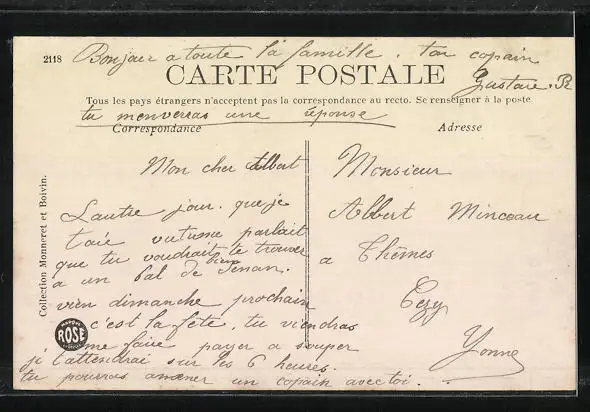 2118
Bonjour a toute la famille. ton copain
Gustave. R
CARTE POSTALE
Tous les pays étrangers n'acceptent pas la correspondance au recto. Se renseigner à la poste
tu menverras une réponse
Correspondance
Adresse
Collection Monneret et Boivin.
Mon cher Albert
Lautre jour. que je
taie vu tu me parlait
que tu voudrait bien te trouver
a un bal de Senan.
vien dimanche prochain
c'est la fête. tu viendras
me faire payer a souper
j l'attendrai sur les 6 heures.
tu pourras amener un copain avec toi.
ROSE
Monsieur
Albert Minceau
a Thèmes
Cezy
Yonne